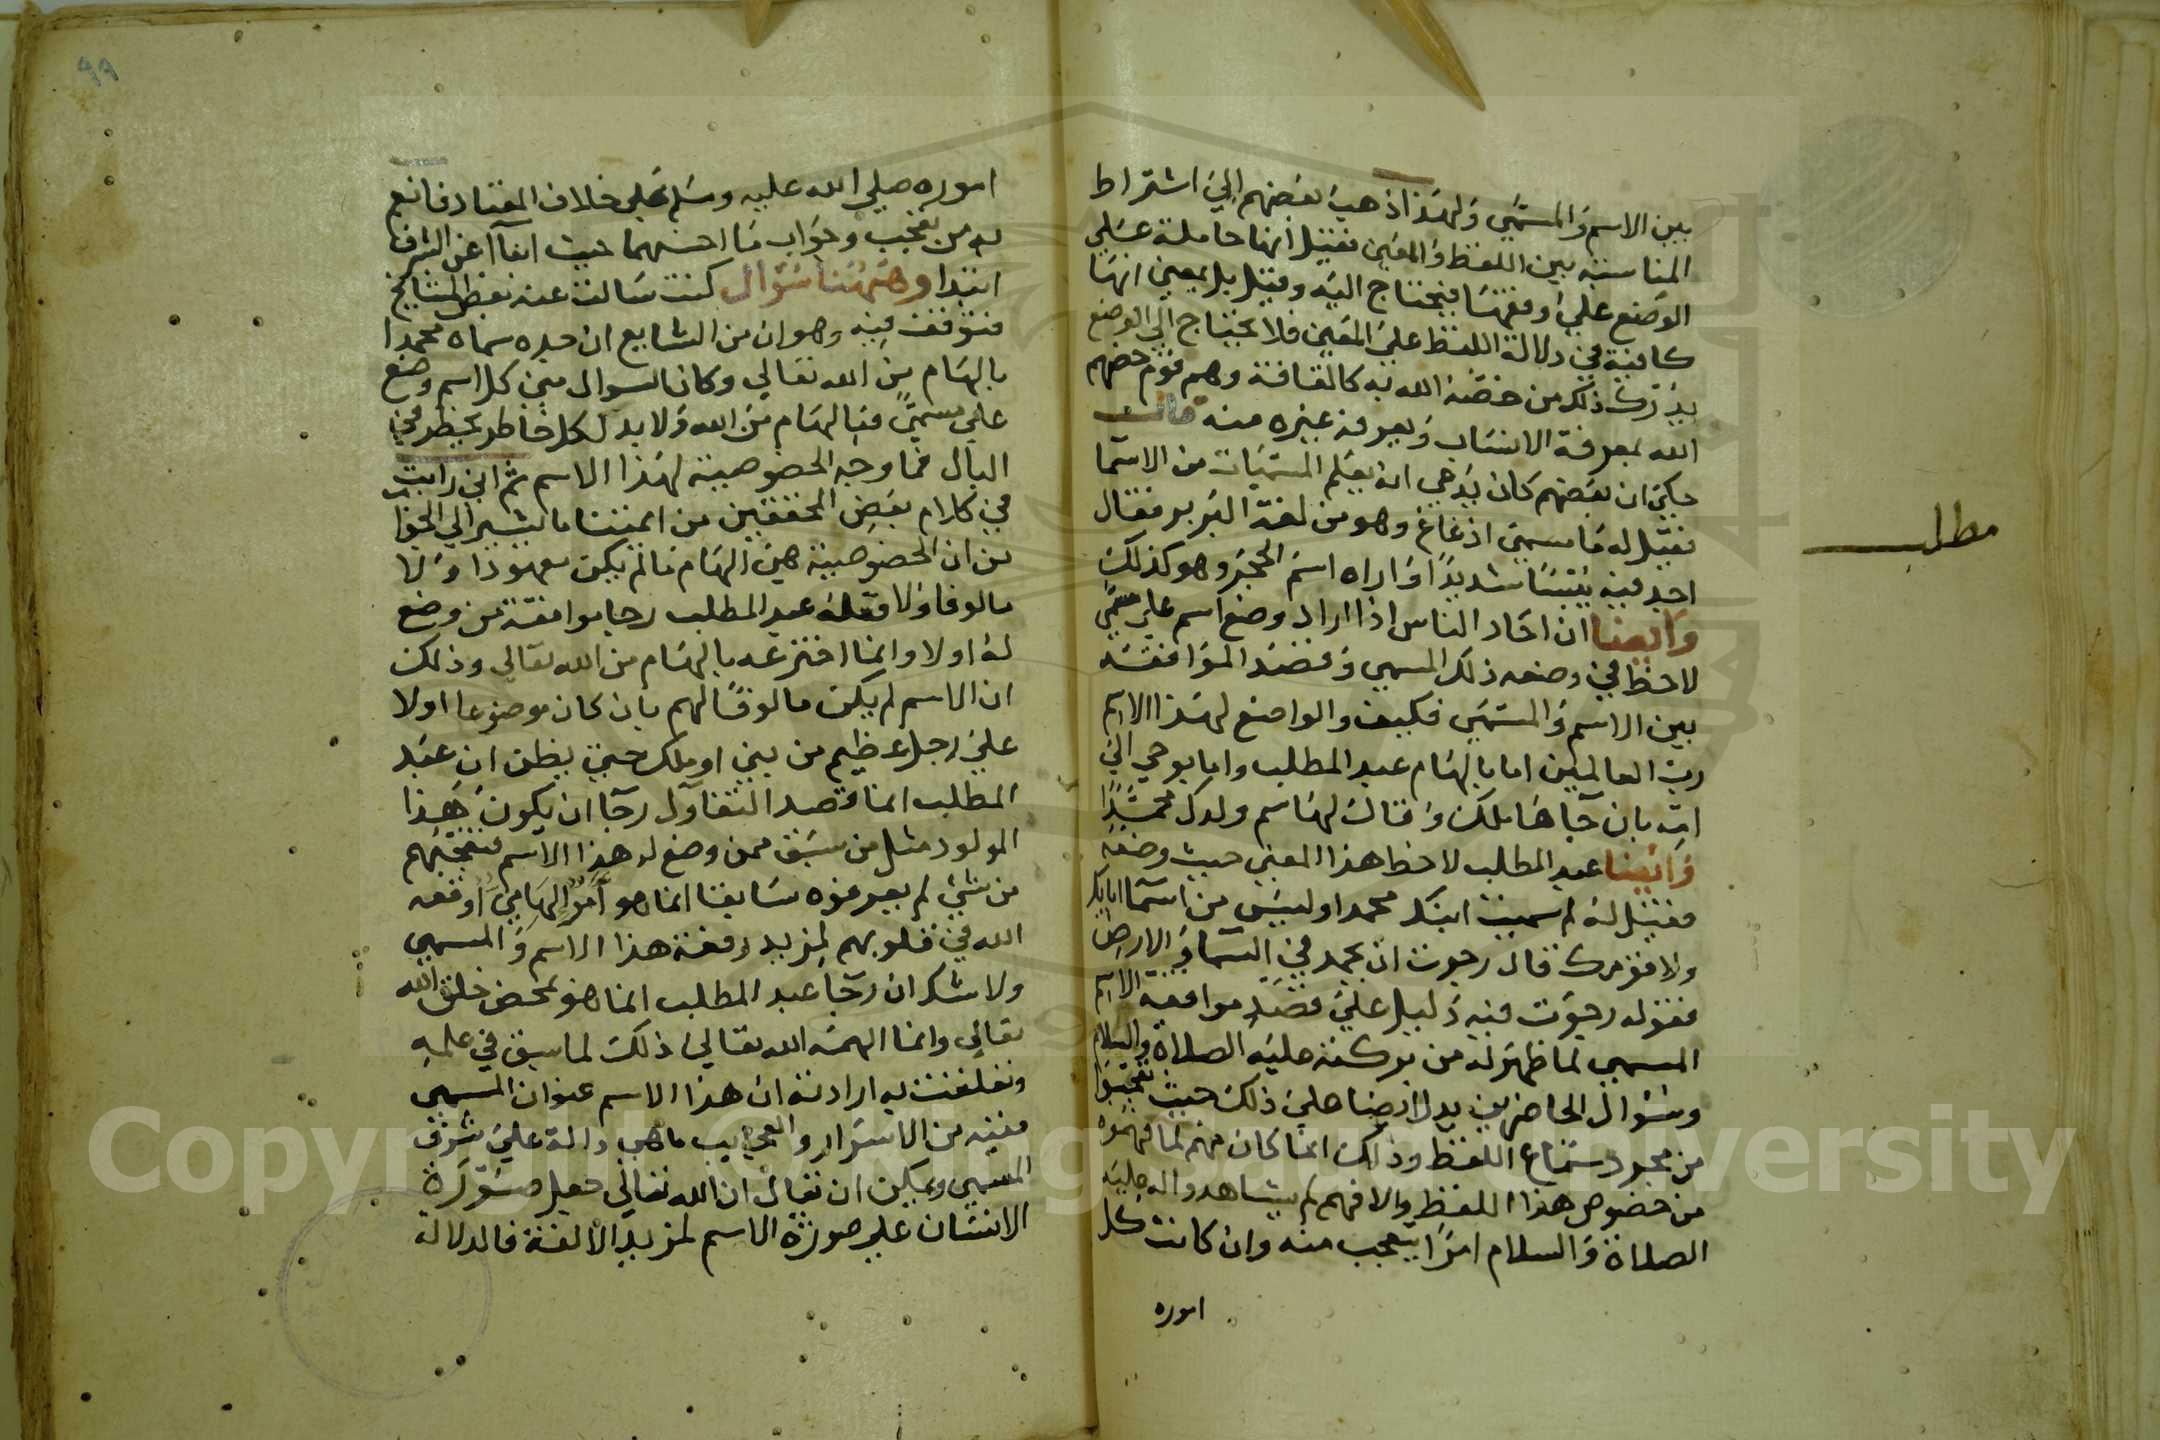 بين الاسم والمسمي ولهذا ذهب بعضهم الي اشتراط
المناسبة بين اللفظ والمعني فقيل انها حاملة علي
الوضع علي وفقها فيحتاج اليه وقيل بل بمعني انها
كافية في دلالة اللفظ علي المعني فلا يحتاج الي الوضع
يدرك ذلك من خصه الله به كالقافة وهم قوم خصهم
الله بمعرفة الانساب ويعرفه غيره منه
حكي ان بعضهم كان يدعي انه يعلم المسميات من الاسما
فقيل له ما مسمي اذغاغ وهو من لغة البربر فقال
اجد فيه يبسا شديدا واراه اسم الحجر وهو كذلك
وايضا ان احاد الناس اذا اراد وضع اسم علي مسمي
لاحظ في وضعه ذلك المسمي وقصد الموافقة
بين الاسم والمسمي فكيف والواضع لهذا الاسم
رب العالمين اما بالهام عبد المطلب واما بوحي الي
امه بان جاها ملك وقال لها سم ولدك محمدا
وايضا عبد المطلب لاحظ هذا المعني حيث وضعه
فقيل له لم سميت ابنك محمدا وليس من اسما ابايك
ولا قومك قال رجوت ان يحمد في السما والارض
فقوله رجوت فيه دليل علي قصد موافقة الاسم
المسمي لما ظهر له من بركته عليه الصلاة والسلام
وسؤال الحاضرين يدل ايضا علي ذلك حيث تعجبوا
من مجرد سماع اللفظ وذلك انما كان منهم لما فهموه
من خصوص هذا اللفظ والا فهم لم يشاهدوا له عليه
الصلاة والسلام امرا يتعجب منه وان كانت كل
اموره
مطلب
٩٩
اموره صلي الله عليه وسلم علي خلاف المعتاد فانعم
به من تعجب وجواب ما احسنهما حيث انبآ عن الشرف
ابتدا وههنا سؤال كنت سالت عنه بعض المشايخ
فتوقف فيه وهو ان من الشايع ان جده سماه محمدا
بالهام من الله تعالي وكان السوال كل اسم وضع
علي مسمي فبالهام من الله ولا بد لكل خاطر يخطر في
البال فما وجه الخصوصية لهذا الاسم ثم اني رايت
في كلام بعض المحققين من ايمتنا ما يشير الي الجواب
من ان الخصوصية هي الهام ما لم يكن معهودا ولا
مالوفا ولا فعله عبد المطلب رجا موافقة من وضع
له اولا وانما اخترعه بالهام من الله تعالي وذلك
ان الاسم لم يكن مالوفا لهم بان كان موضوعا اولا
علي رجل عظيم من نبي او ملك حتي يظن ان عبد
المطلب انما قصد التفاول رجا ان يكون هذا
المولود مثل من سبق ممن وضع له هذا الاسم فتعجبهم
من شئ لم يعرفوه سابقا انما هو امر الهامي اوقعه
الله في قلوبهم لمزيد رفعة هذا الاسم والمسمي
ولا شك ان رجا عبد المطلب انما هو بمحض خلق الله
تعالي وانما الهمه الله تعالي ذلك لما سبق في علمه
وتعلقت به ارادته ان هذا الاسم عنوان المسمي
ففيه من الاسرار والعجايب ما هي دالة علي شرف
المسمي ويمكن ان يقال ان الله تعالي جعل صورة
الانسان علي صورة الاسم لمزيد الالفة فالدلالة
Copyright © King Saud University